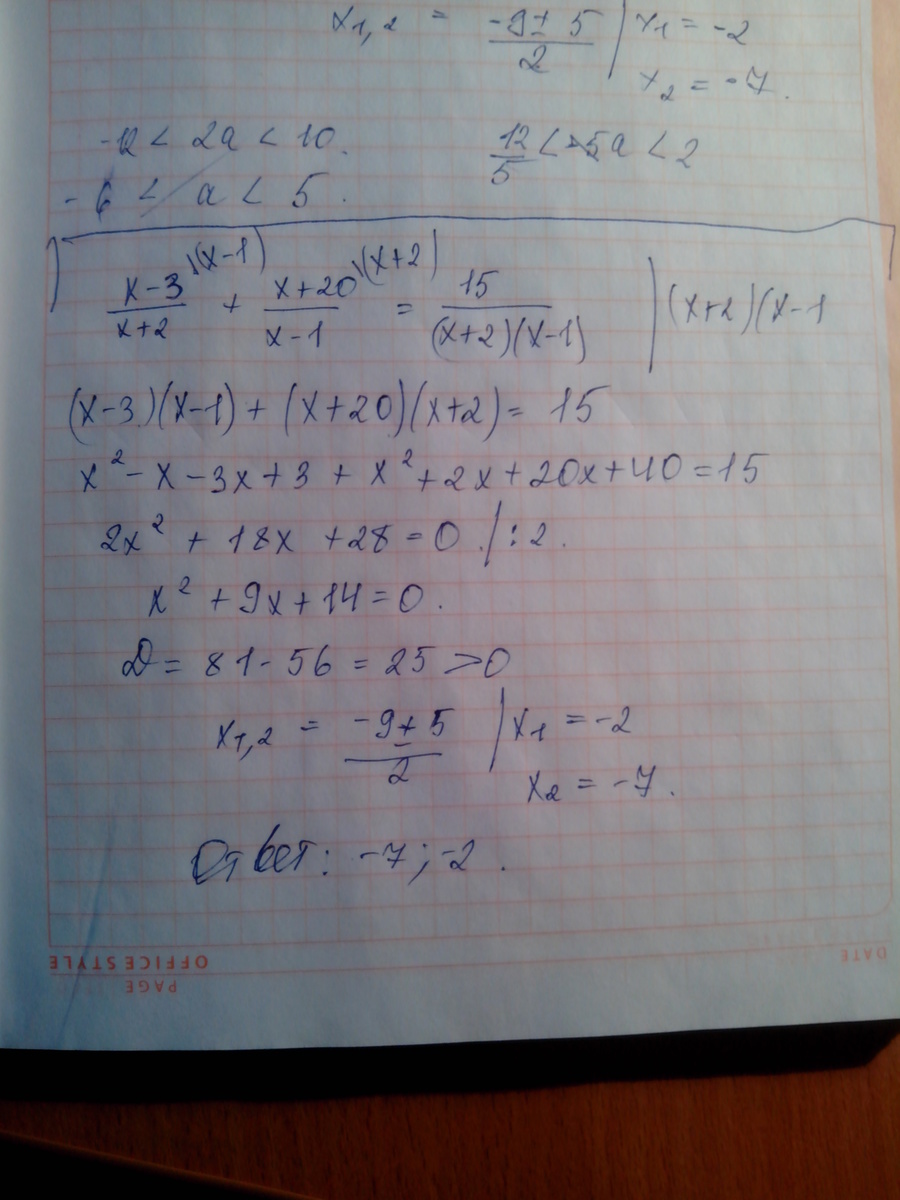 x1,2 = (-9 ± 5)/2 | x1 = -2
x2 = -7.
-12 < 2a < 10.
12/5 < -5a < 2
-6 < a < 5.
(x-3)/(x+2) \(x-1) + (x+20)/(x-1) \(x+2) = 15/((x+2)(x-1)) | (x+2)(x-1
(x-3)(x-1) + (x+20)(x+2) = 15
x² - x - 3x + 3 + x² + 2x + 20x + 40 = 15
2x² + 18x + 28 = 0. | : 2.
x² + 9x + 14 = 0.
D = 81 - 56 = 25 > 0
x1,2 = (-9 ± 5)/2 | x1 = -2
x2 = -7.
Ответ: -7; -2.
OFFICE STYLE
PAGE
DATE